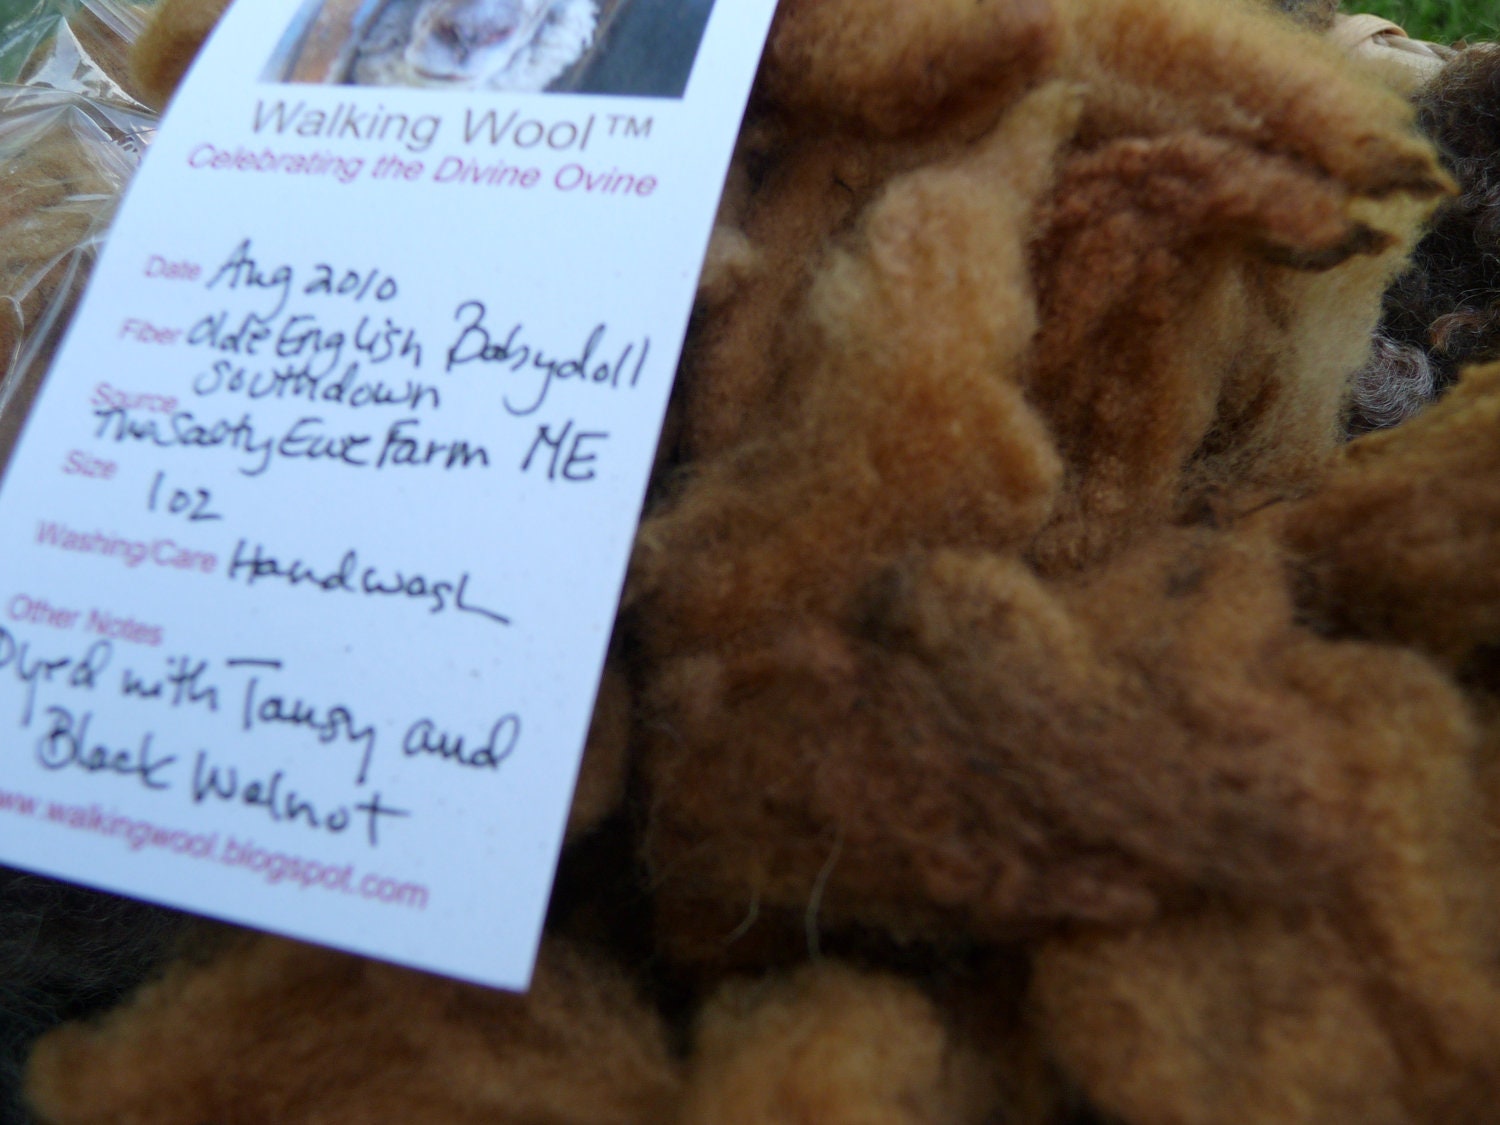 Walking Wool™
Celebrating the Divine Ovine
Date Aug 2010
Fiber Olde English Babydoll
Southdown
Source
The Salty Ewe Farm ME
Size
1 oz
Washing/Care Handwash
Other Notes
Dyed with Tansy and
Black Walnot
www.walkingwool.blogspot.com